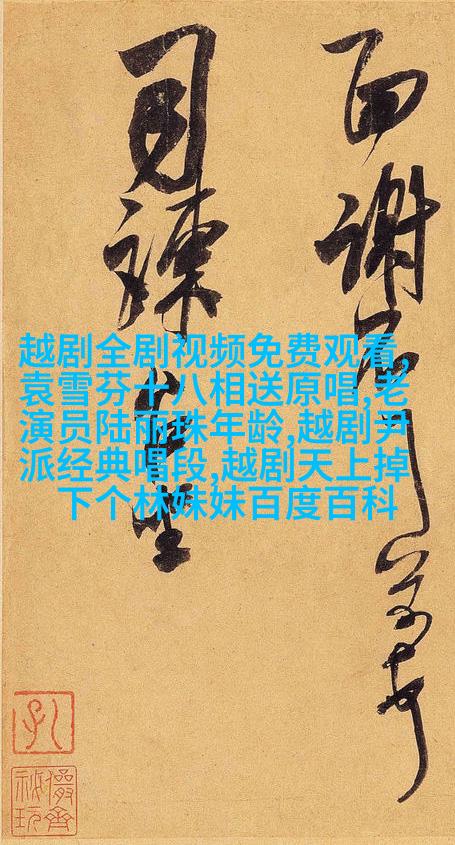 面謝
司諫
越剧全剧视频免费观看,
袁雪芬十八相送原唱,老
演员陆丽珠年龄,越剧尹
派经典唱段,越剧天上掉
下个林妹妹百度百科
儼齋
秘玩